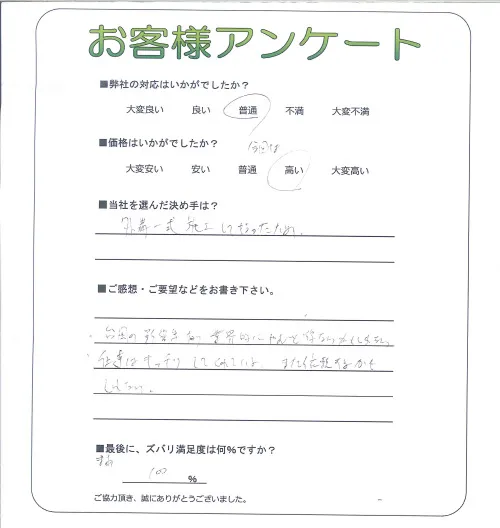 お客様アンケート
■弊社の対応はいかがでしたか？
大変良い 良い 普通 不満 大変不満
■価格はいかがでしたか？ 今回は
大変安い 安い 普通 高い 大変高い
■当社を選んだ決め手は？
外壁一式 施工してもらったため。
■ご感想・ご要望などをお書き下さい。
台風の 業界的に
仕事は してくれている また依頼するかも
しれない。
■最後に、ズバリ満足度は何％ですか？
100 ％
ご協力頂き、誠にありがとうございました。